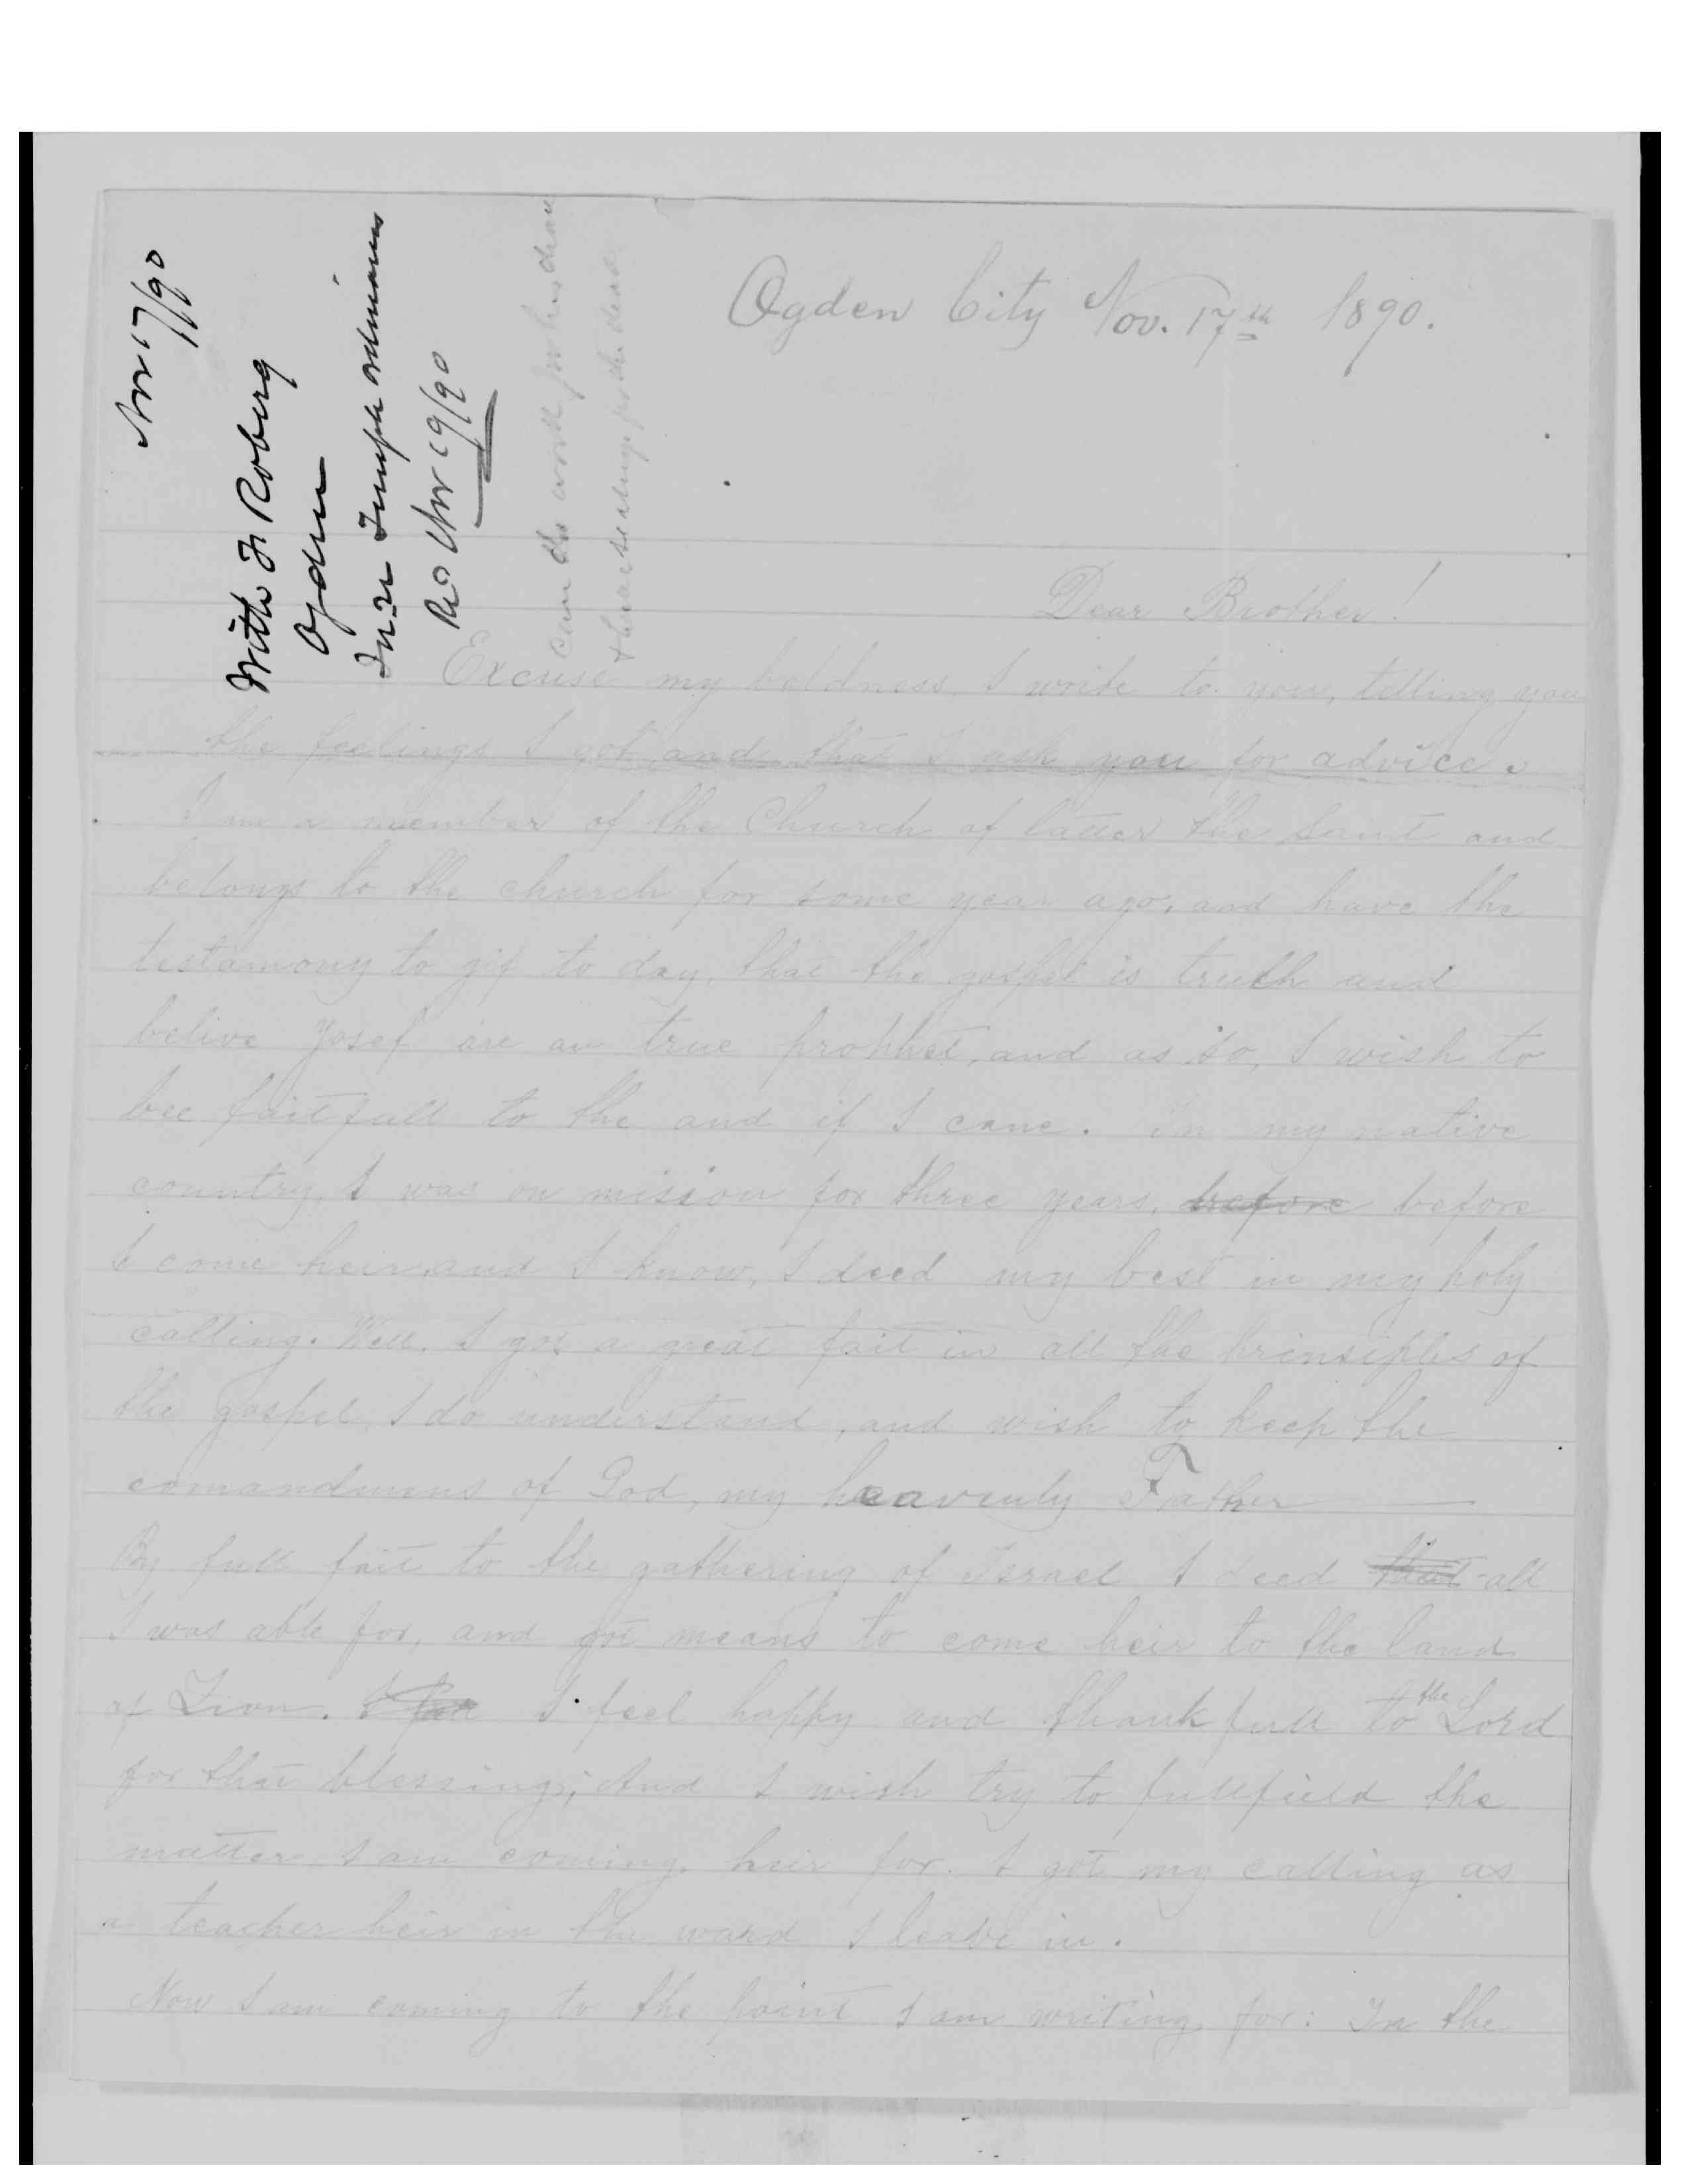 Nov 17/90
Ogden
In re Temple ordinances
Rec Nov 19/90
can do work for his dead
Ogden City Nov. 17th 1890.
Dear Brother!
Excuse my boldness I write to you, telling you
the feelings I got and that I ask you for advice.
I am a member of the Church of latter the Saint and
belongs to the church for some year ago, and have the
testamony to gif to day, that the gospel is truth and
belive Josef are an true prophet, and as so, I wish to
bee faitfull to the and if I cane. In my native
country, I was on mision for three years, before before
I come heir, and I know, I deed my best in my holy
calling. Well, I got a great fait in all the prinsiples of
the gospel I do understand, and wish to keep the
comandmens of God, my heavenly Father
By full fait to the gathering of Israel I deed that all
I was able for, and got means to come heir to the land
of Zion. I feel I feel happy and thankfull to the Lord
for that blessing; And I wish try to fullfield the
matter I am coming heir for. I got my calling as
a teacher heir in the ward I leave in.
Now I am coming to the point I am writing for: In the